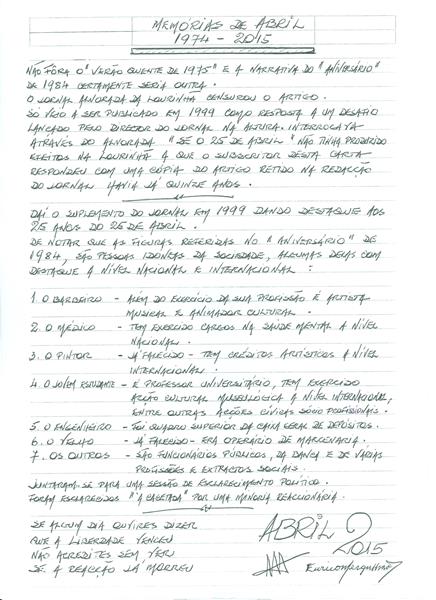 MEMÓRIAS DE ABRIL
1974 - 2015
NÃO FÔRA O "VERÃO QUENTE DE 1975" E A NARRATIVA DO "ANIVERSÁRIO"
DE 1984 CERTAMENTE SERIA OUTRA.
O JORNAL ALVORADA DA LOURINHÃ CENSUROU O ARTIGO.
SÓ VEIO A SER PUBLICADO EM 1999 COMO RESPOSTA A UM DESAFIO
LANÇADO PELO DIRECTOR DO JORNAL NA ALTURA. INTERROGAVA
ATRAVÉS DO ALVORADA "SE O 25 DE ABRIL" NÃO TINHA PRODUZIDO
EFEITOS NA LOURINHÃ A QUE O SUBSCRITOR DESTA CARTA
RESPONDEU COM UMA CÓPIA DO ARTIGO RETIDO NA REDACÇÃO
DO JORNAL HAVIA JÁ QUINZE ANOS.
DAÍ O SUPLEMENTO DO JORNAL EM 1999 DANDO DESTAQUE AOS
25 ANOS DO 25 DE ABRIL.
DE NOTAR QUE AS FIGURAS REFERIDAS NO "ANIVERSÁRIO" DE
1984, SÃO PESSOAS IDÓNEAS DA SOCIEDADE, ALGUMAS DELAS COM
DESTAQUE A NÍVEL NACIONAL E INTERNACIONAL:
1. O BARBEIRO - ALÉM DO EXERCÍCIO DA SUA PROFISSÃO É ARTISTA
MUSICAL E ANIMADOR CULTURAL.
2. O MÉDICO - TEM EXERCIDO CARGOS NA SAÚDE MENTAL A NÍVEL
NACIONAL.
3. O PINTOR - JÁ FALECIDO - TEM CRÉDITOS ARTÍSTICOS A NÍVEL
INTERNACIONAL.
4. O JOVEM ESTUDANTE - É PROFESSOR UNIVERSITÁRIO, TEM EXERCIDO
ACÇÃO CULTURAL MUSEOLÓGICA A NÍVEL INTERNACIONAL,
ENTRE OUTRAS ACÇÕES CÍVICAS SÓCIO PROFISSIONAIS.
5. O ENGENHEIRO - FOI QUADRO SUPERIOR DA CAIXA GERAL DE DEPÓSITOS.
6. O VELHO - JÁ FALECIDO - ERA OPERÁRIO DE MARCENARIA.
7. OS OUTROS - SÃO FUNCIONÁRIOS PÚBLICOS, DA DANÇA E DE VÁRIAS
PROFISSÕES E EXTRACTOS SOCIAIS.
JUNTARAM-SE PARA UMA SESSÃO DE ESCLARECIMENTO POLÍTICO.
FORAM ESCLARECIDOS "À CACETADA" POR UMA MANORIA REACCIONÁRIA.
SE ALGUM DIA OUVIRES DIZER
QUE A LIBERDADE VENCEU
NÃO ACREDITES SEM VER
SE A REACÇÃO JÁ MORREU
ABRIL
2015